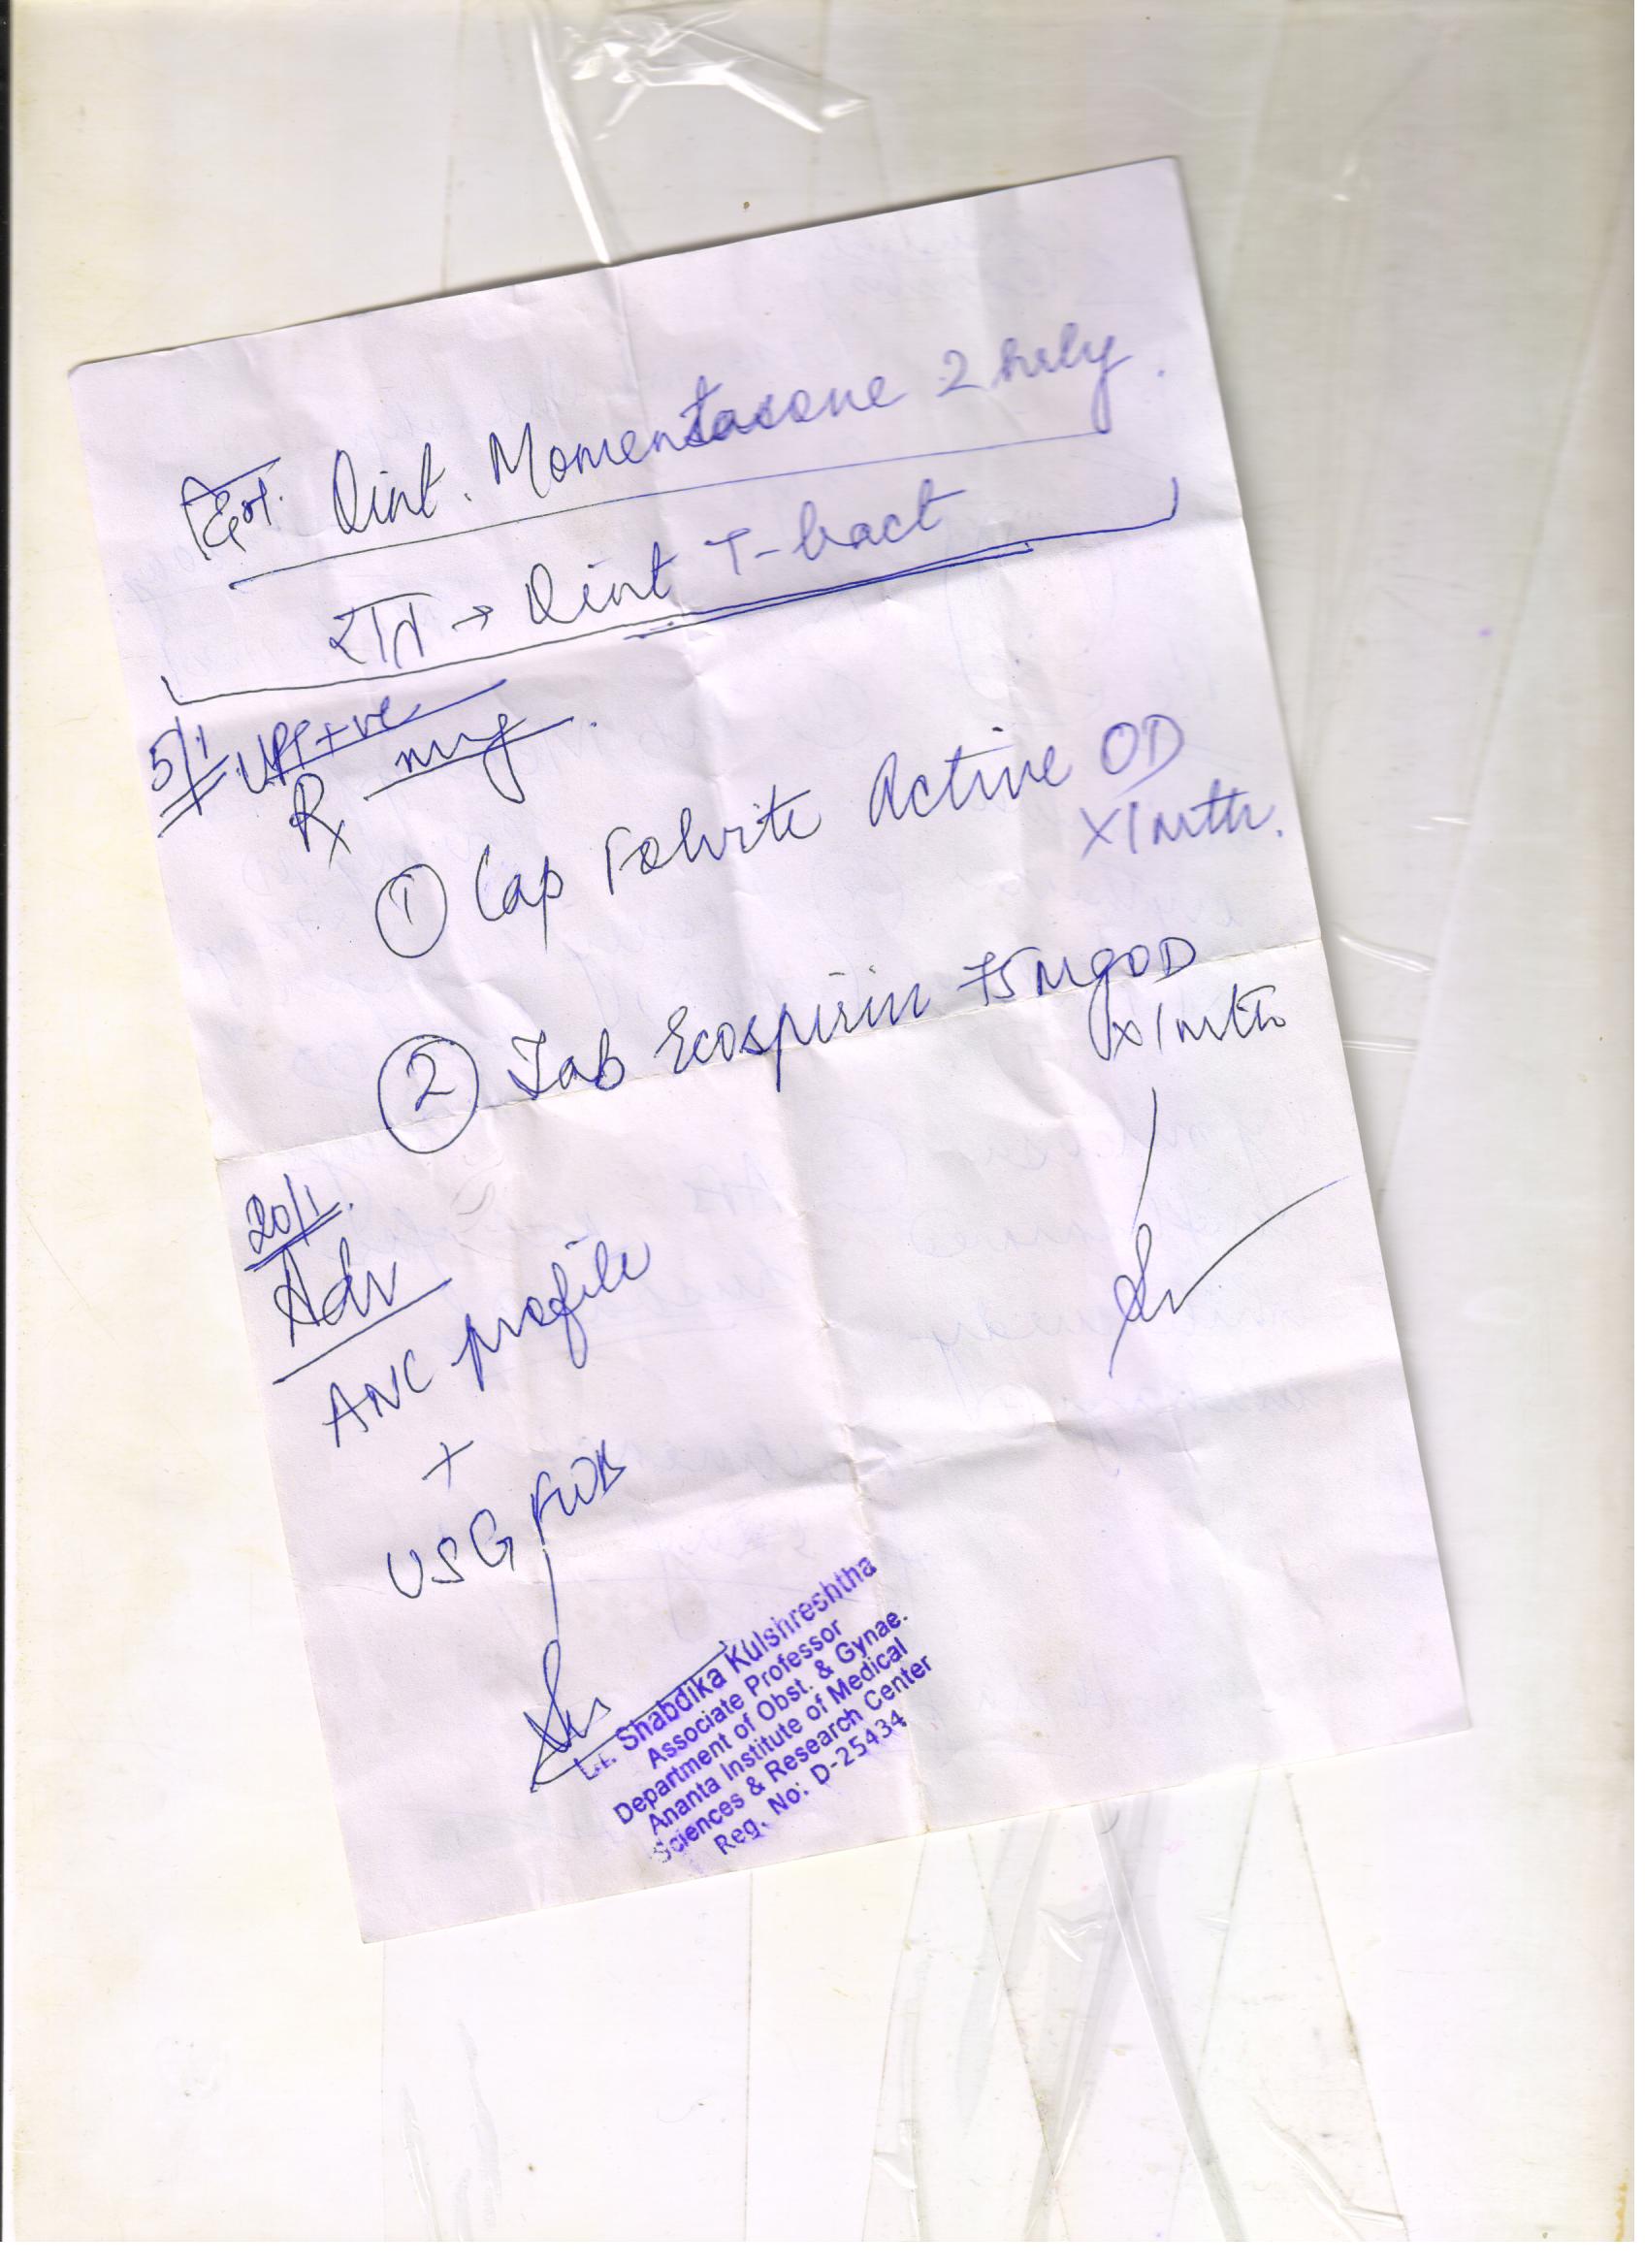 दिन. Oint. Momentasone 2 hrly.
रात → Oint T-bact
5/1 UPT +ve
Rx
① Cap Folvite Active OD
x 1 mth.
② Tab Ecospirin 75 mg OD
x 1 mth
20/1.
Adv
ANC profile
+
USG FWB
Dr. Shabdika Kulshreshtha
Associate Professor
Department of Obst. & Gynae.
Ananta Institute of Medical
Sciences & Research Center
Reg. No: D-25434